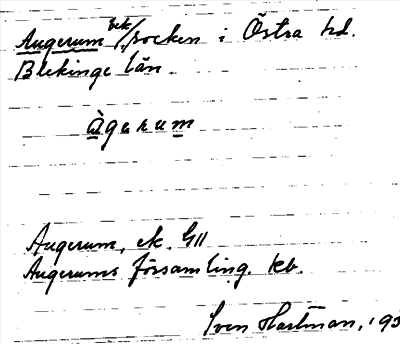 Augerum bek/socken i Östra hd.
Blekinge län.
àgerum
Augerum, ek. G11
Augerums församling. kb.
Sven Hartman, 193